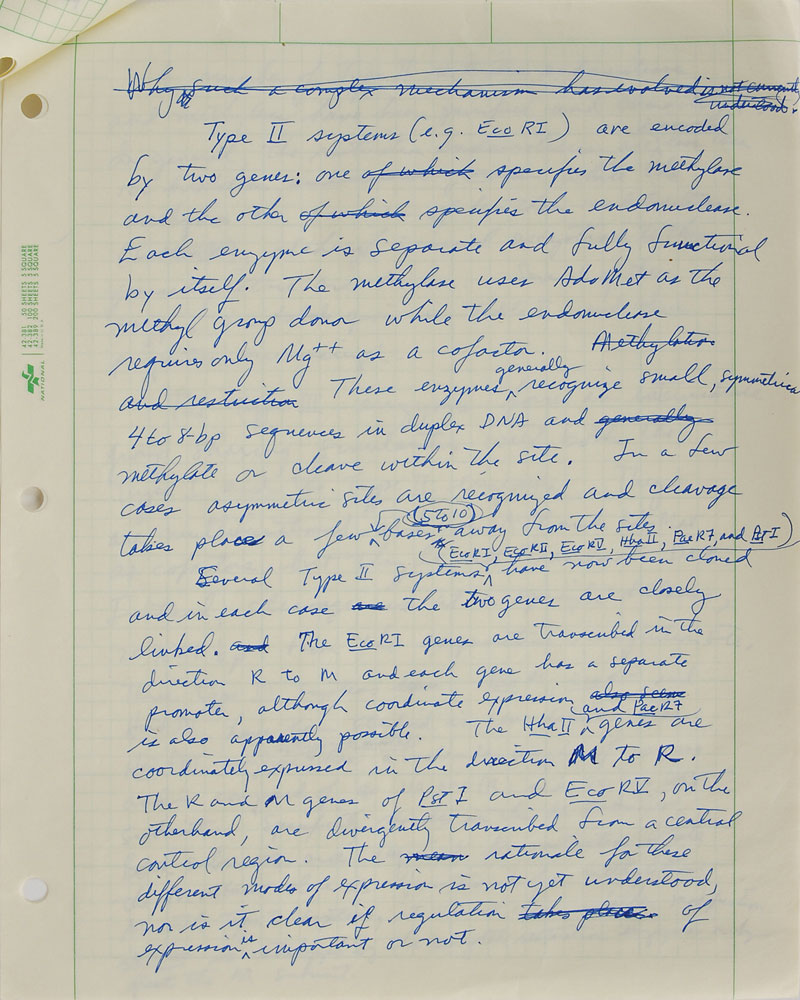 Why such a complex mechanism has evolved is not currently
understood.
Type II systems (e.g. EcoRI) are encoded
by two genes: one of which specifies the methylase
and the other of which specifies the endonuclease.
Each enzyme is separate and fully functional
by itself. The methylase uses AdoMet as the
methyl group donor while the endonuclease
requires only Mg++ as a cofactor. Methylation
generally
and restriction These enzymes recognize small, symmetrical
4 to 8-bp sequences in duplex DNA and generally
methylate or cleave within the site. In a few
cases asymmetric sites are recognized and cleavage
(5 to 10)
takes place a few bases away from the sites.
(EcoRI, EcoRII, EcoRV, HhaII, PaeR7, and PstI)
Several Type II systems have now been cloned
and in each case are the two genes are closely
linked. and The EcoRI genes are transcribed in the
direction R to M and each gene has a separate
promoter, although coordinate expression also seems
and PaeR7
is also apparently possible. The HhaII genes are
coordinately expressed in the direction M to R.
The R and M genes of PstI and EcoRV, on the
otherhand, are divergently transcribed from a central
control region. The mean rationale for these
different modes of expression is not yet understood,
nor is it clear if regulation takes place of
is
expression important or not.
42-381 50 SHEETS 5 SQUARE
42-382 100 SHEETS 5 SQUARE
42-389 200 SHEETS 5 SQUARE
NATIONAL